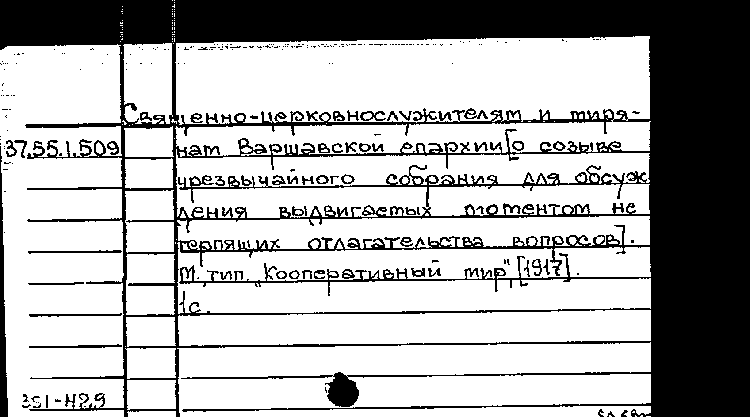 Священно-церковнослужителям и миря-
37.55.1.509 нам Варшавской епархии [о созыве
чрезвычайного собрания для обсуж
дения выдвигаемых моментом не
терпящих отлагательства вопросов].
М., тип. „Кооперативный мир", [1917].
1с.
351-429